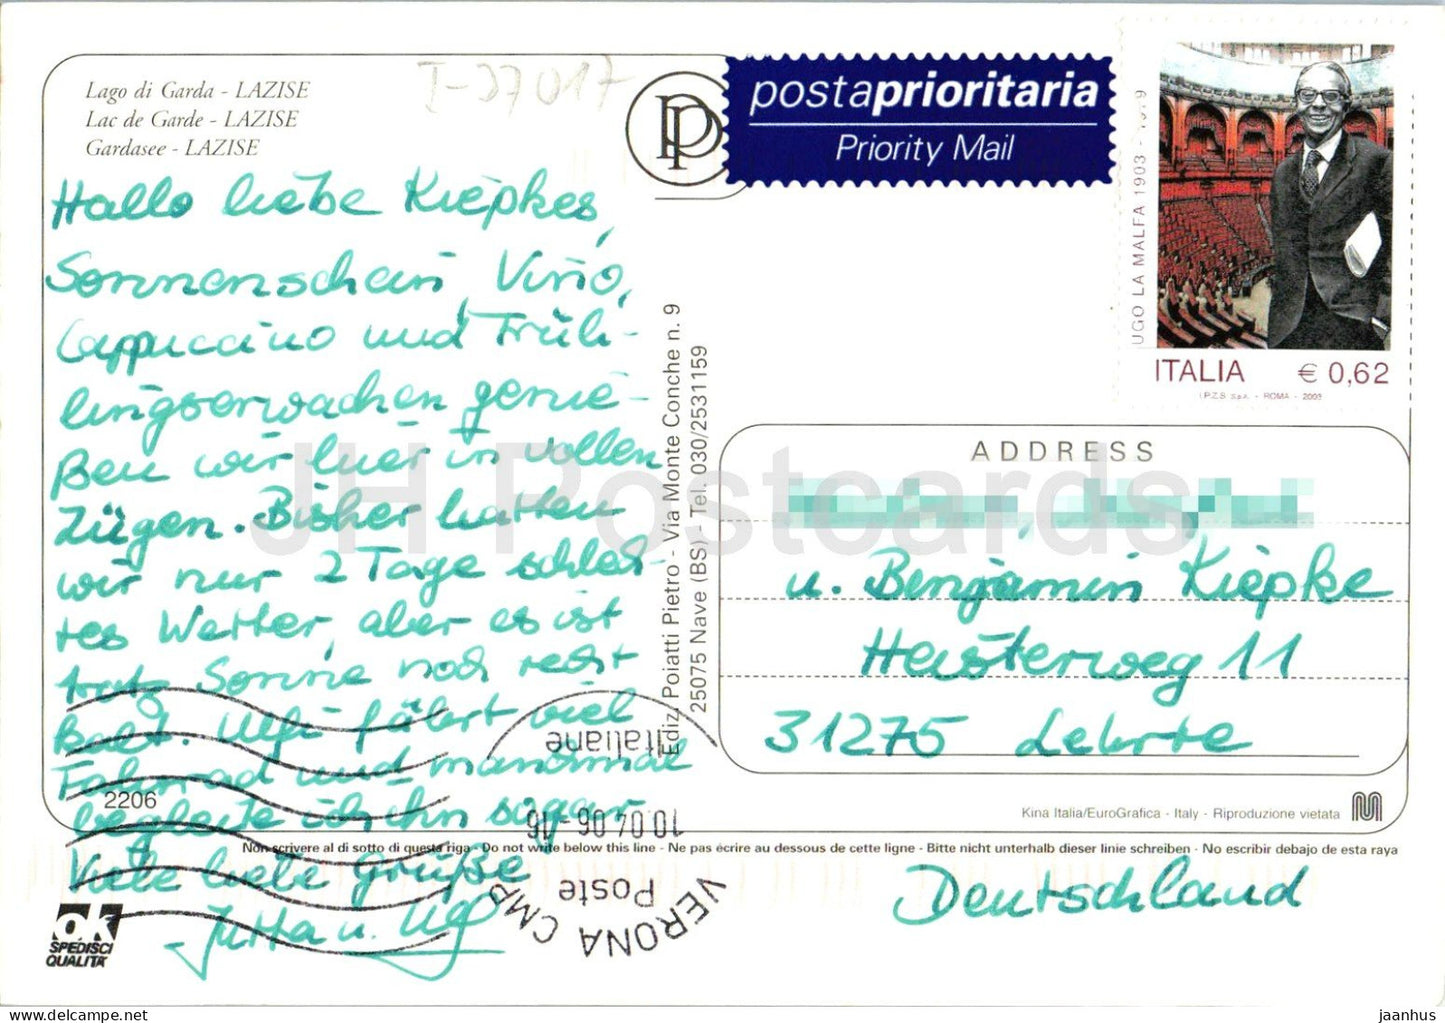 Lago di Garda - LAZISE
Lac de Garde - LAZISE
Gardasee - LAZISE
I-37017
PP
postaprioritaria
Priority Mail
UGO LA MALFA 1903 - 1979
ITALIA € 0,62
I.P.Z.S. S.p.A. - ROMA - 2003
Hallo liebe Kiepkes,
Sonnenschein, Vino,
Cappuccino und Früh-
lingserwachen genie-
ßen wir hier in vollen
Zügen. Bisher hatten
wir nur 2 Tage schlech-
tes Wetter, aber es ist
trotz Sonne noch recht
kalt. Ulli fährt viel
Fahrrad und manchmal
begleite ich ihn sogar.
Viele liebe Grüße
Jutta u.
Ediz. Poiatti Pietro - Via Monte Conche n. 9
25075 Nave (BS) - Tel. 030/2531159
ADDRESS
u. Benjamin Kiepke
Heisterweg 11
31275 Lehrte
Deutschland
2206
Kina Italia/EuroGrafica - Italy - Riproduzione vietata
Non scrivere al di sotto di questa riga - Do not write below this line - Ne pas écrire au dessous de cette ligne - Bitte nicht unterhalb dieser linie schreiben - No escribir debajo de esta raya
ok
SPEDISCI
QUALITA'
VERONA CMP
Poste
10.04.06-16
Italiane
JH Postcards
jaanhus